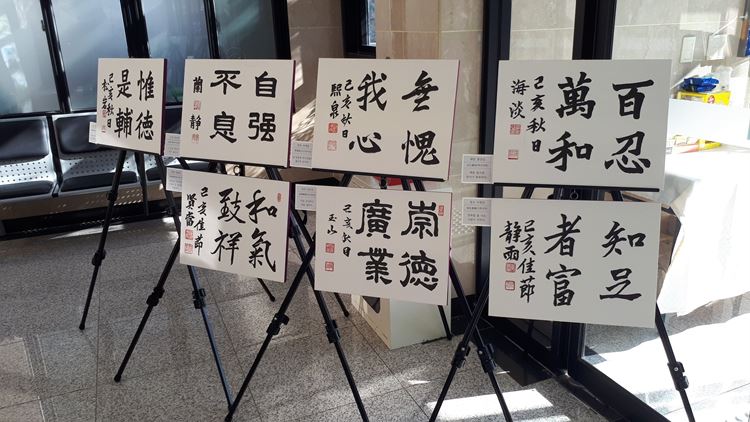 惟德
是輔
己亥秋日
自强
不息
蘭静
無愧
我心
己亥秋日
熙泉
百忍
萬和
己亥秋日
海淡
和氣
致祥
己亥佳節
崇德
廣業
己亥秋日
玉山
知足
者富
己亥佳節
静雨